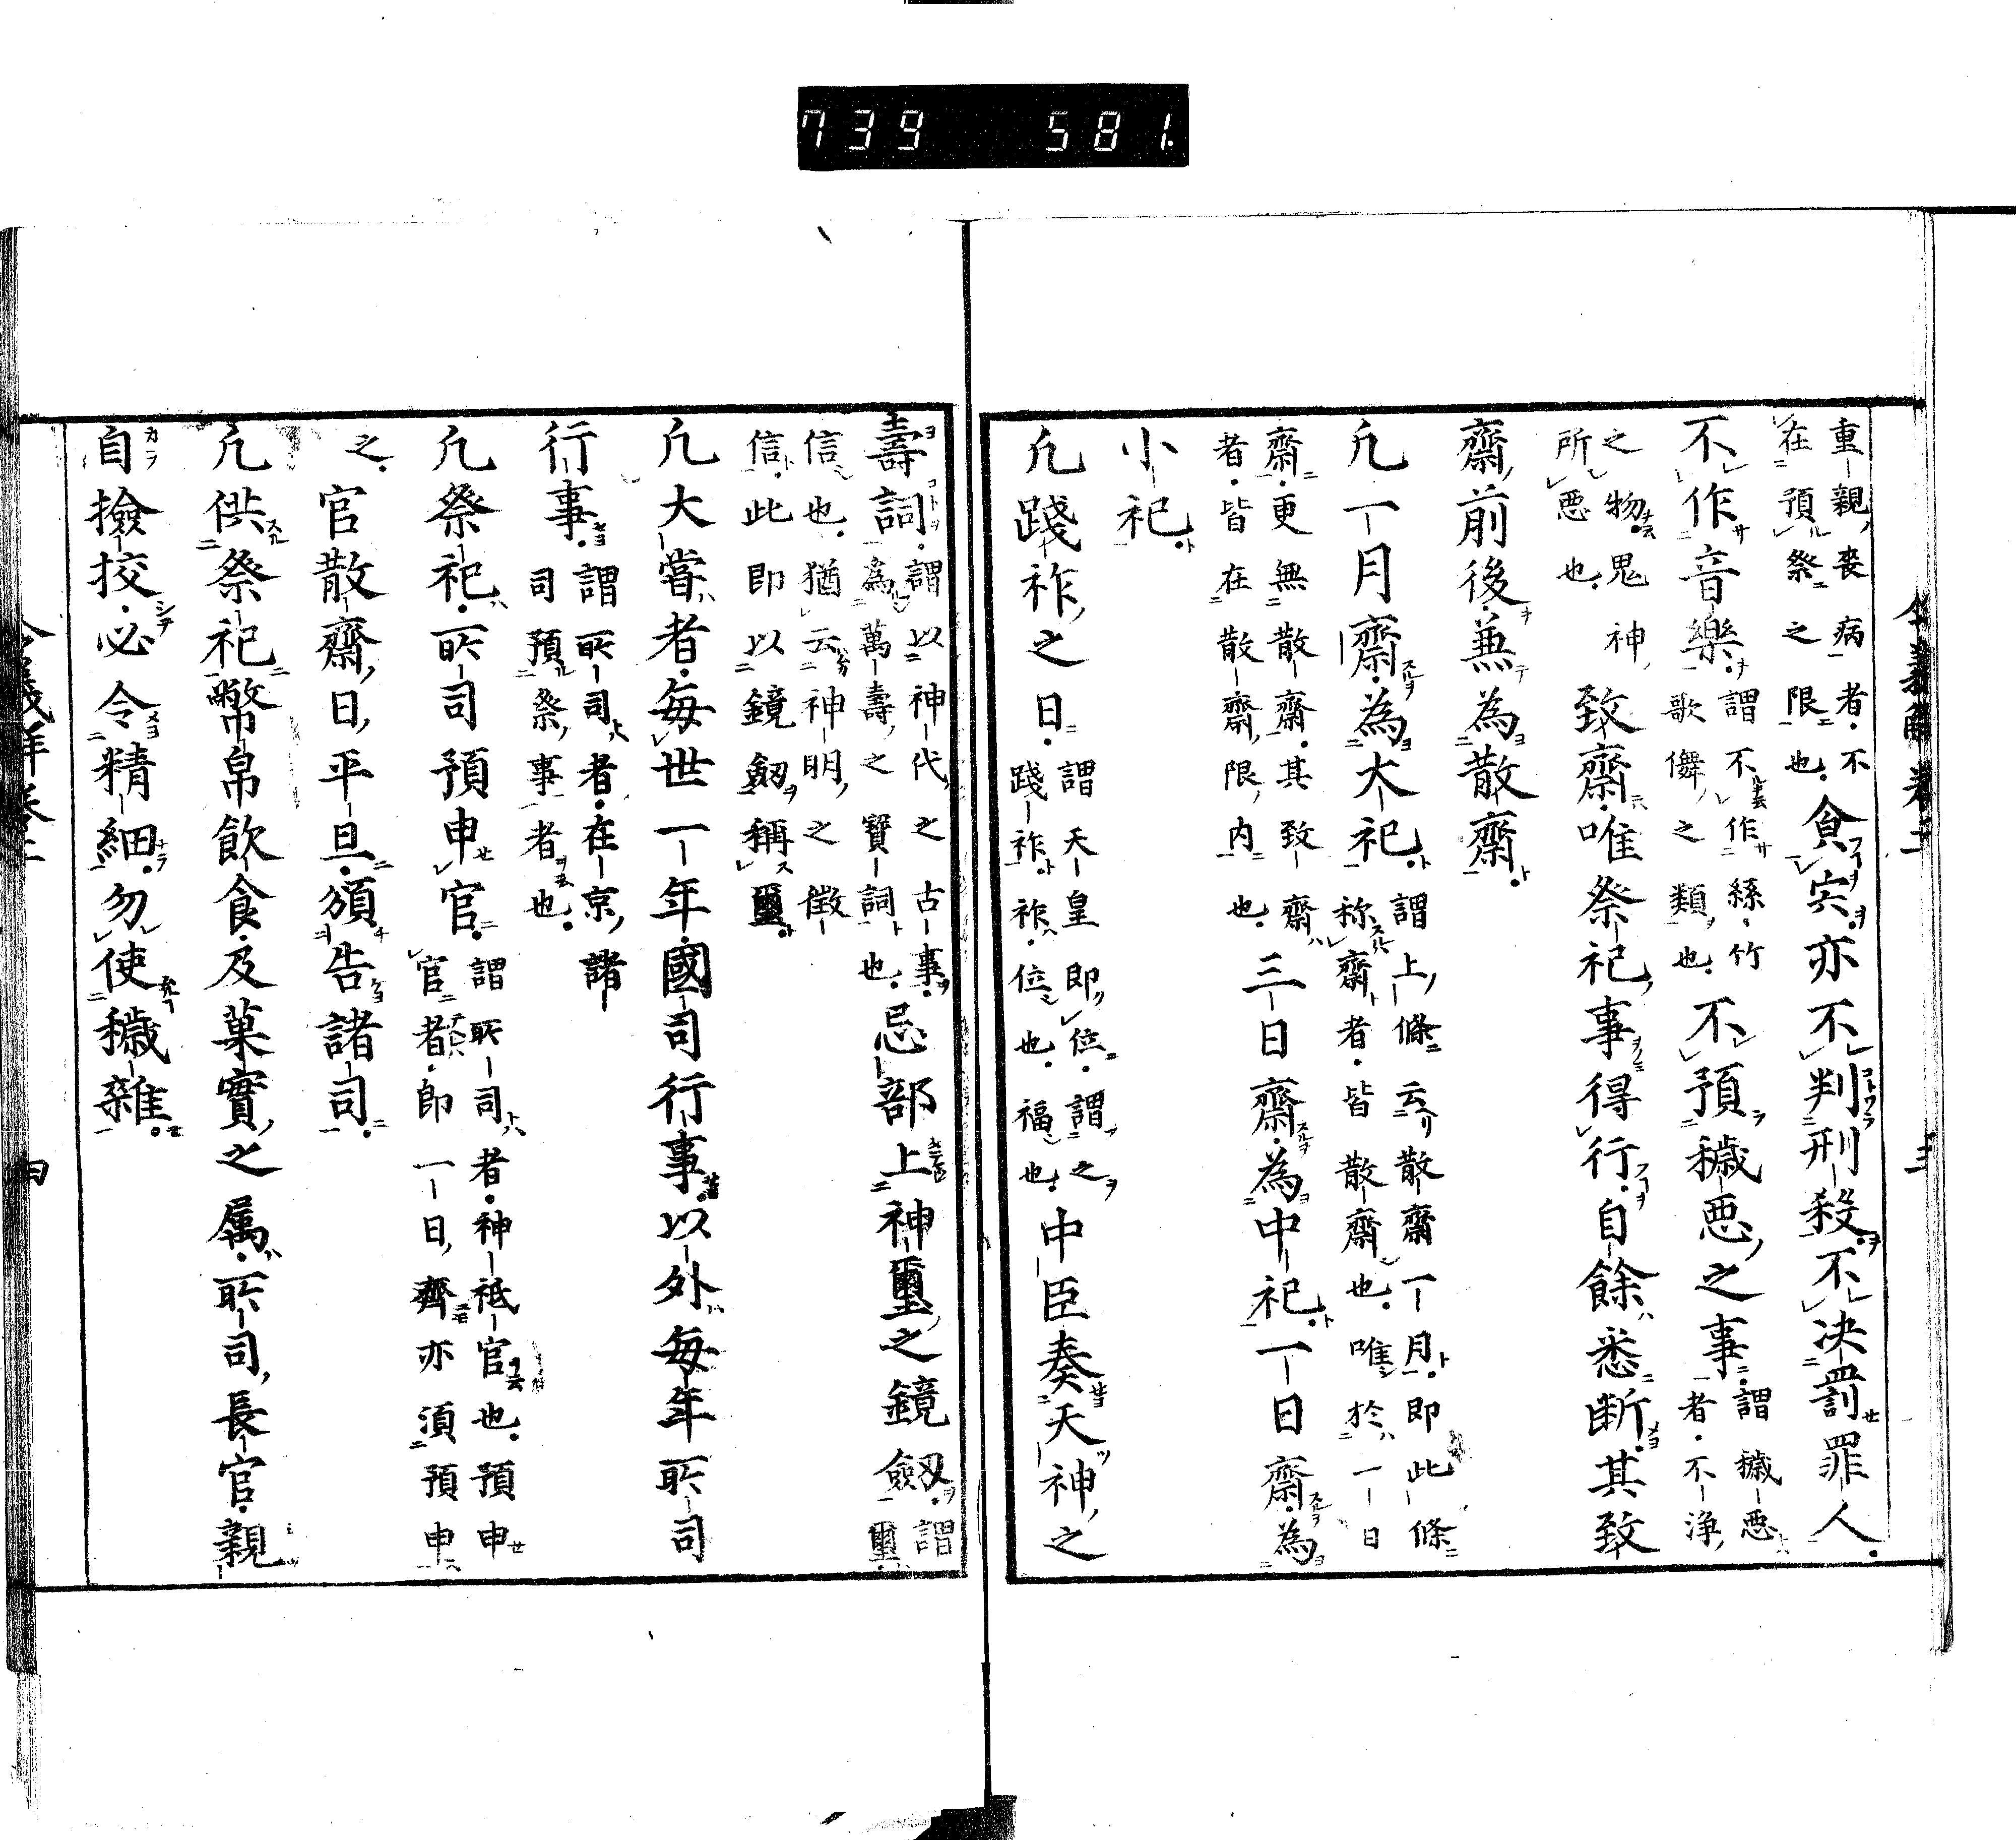 739 581.
重親喪病者不
在預祭之限也
食宍亦不判刑殺不決罰罪人
不作音樂
謂不作絲竹
歌儛之類也
不預穢悪之事
謂穢悪
者不浄
之物鬼神
所悪也
致齋唯祭祀事得行自餘悉断其致
齋前後兼為散齋
凡一月齋為大祀
謂上條云散齋一月即此條
称齋者皆散齋也唯於一日
齋更無散齋其致齋
者皆在散齋限内也
三日齋為中祀一日齋為
小祀
凡踐祚之日
謂天皇即位謂之
踐祚祚位也福也
中臣奏天神之
壽詞
謂以神代之古事
為萬壽之寳詞也
忌部上神璽之鏡劔
謂
璽
信也猶云神明之徴
信此即以鏡劔稱璽
凡大甞者毎世一年國司行事以外毎年所司
行事
謂所司者在京諸
司預祭事者也
凡祭祀所司預申官
謂所司者神祇官也預申
官者即一日齊亦須預申
之
官散齋日平旦頒告諸司
凡供祭祀幣帛飲食及菓實之属所司長官親
自撿挍必令精細勿使穢雜